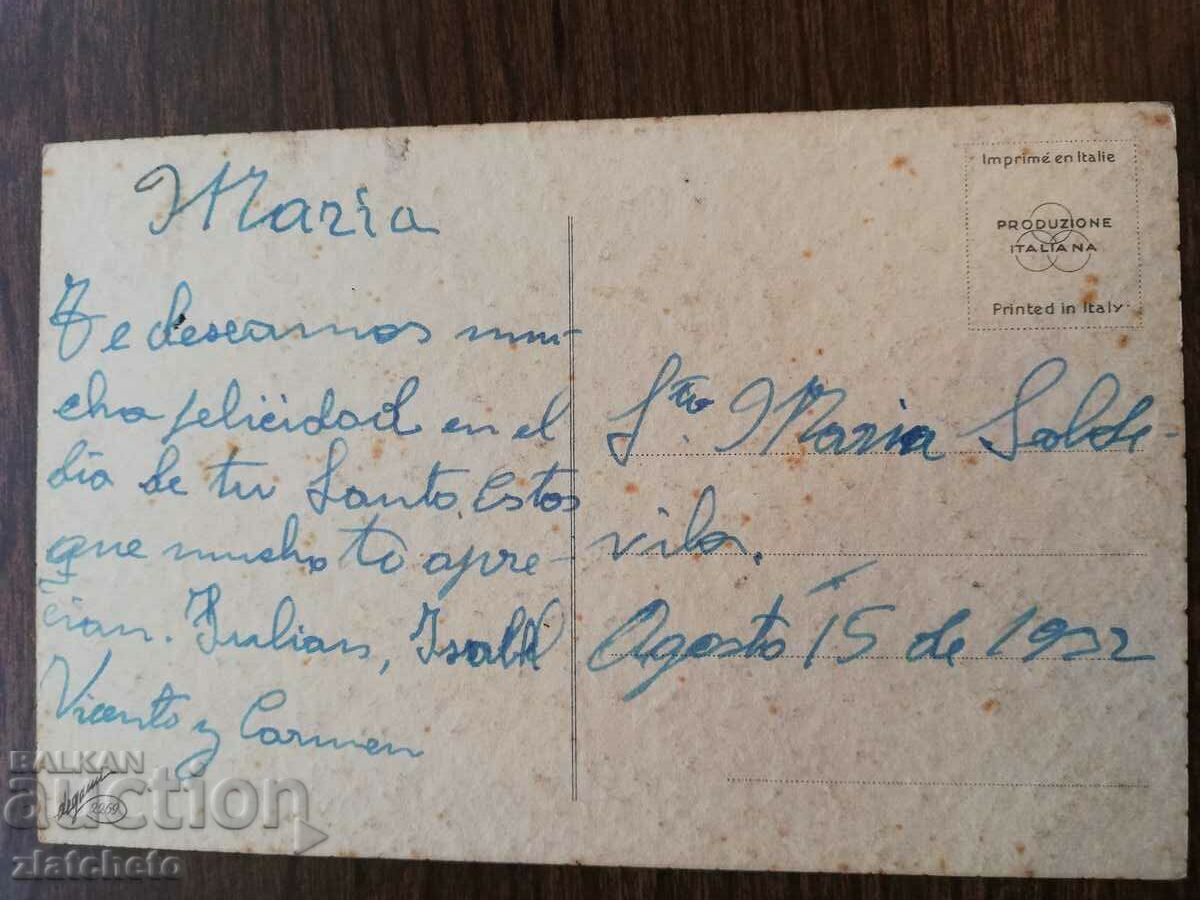 Maria
Te deseamos mu-
cha felicidad en el
dia de tu Santo. Estos
que mucho te apre-
cian. Julian, Isabel
Vicente y Carmen
Imprimé en Italie
PRODUZIONE
ITALIANA
Printed in Italy
Srta. Maria Solde-
vila.
Agosto 15 de 1952
2269
BALKAN
auction
zlatcheto